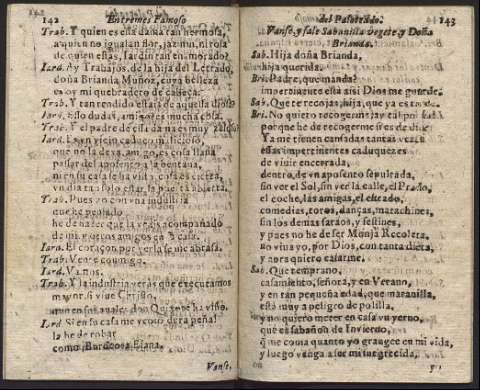 142
Entremes Famoso
Trab. Y quien es essa dama tan hermosa,
a quien no igualan flor, jazmin, ni rosa
de quien estàs, Iardin tan enamorado?
Iard. Ay Trabajos, de la hija del Letrado,
doña Brianda Muñoz, cuya belleza
es oy mi quebradero de cabeça.
Trab. Y tan rendido estais de aquessa diosa?
Iard. Esso dudas, amigo? es mucha cosa.
Trab. Y el padre de essa dama es muy zeloso?
Iard. Es un viejo caduco malicioso,
que no la dexa, amigo, es cosa llana
passar del aposento a la ventana,
ni en su casa se ha visto, cosa es cierta,
vn dia tan solo estar la puerta abierta.
Trab. Pues yo con vna industria
que he pensado
he de hazer que la veais acompañado
de mi y otros amigos en casa.
Iard. El coraçon por verla se me abrasa.
Trab. Veníos conmigo.
Iard. Vamos.
Trab. Y la industria veràs que executamos
mayor, si vive Christo,
que en sus anales don Quixote ha visto.
Iard. Si en su casa me veo
la he de robar
como
Vanse.
del Sabañon.
143
Vanse, y sale Sabanista vegete, y Doña
Brianda.
Sab. Hija doña Brianda,
hija querida.
Bri. Padre, que manda?
impertinente està assi Dios me guarde.
Sab. Que te recojas, hija, que ya es tarde.
Bri. No quiero recogerme, ay tal porfia!
porque he de recogerme si es de dia?
Ya me tienen cansada tantas vezes
essas impertinentes caduquezes
de viuir encerrada,
dentro de vn aposento sepulcada,
sin ver el Sol, sin ver la calle, el Prado,
el coche, las amigas, el estrado,
comedias, toros, danças, matachines,
sin los demas saraos, y festines,
y pues no he de ser Monja Recoleta,
no viua yo, por Dios, con tanta dieta,
y aora quiero casarme.
Sab. Que temprano,
casamiento, señora, y en Verano,
y en tan pequeña edad, que marauilla,
està muy a peligro de polilla,
y no quiero meter en casa vn yerno,
que es sabañon de Invierno,
que coma quanto yo grangee en mi vida,
y luego venga a ser mi suegrecida,
y